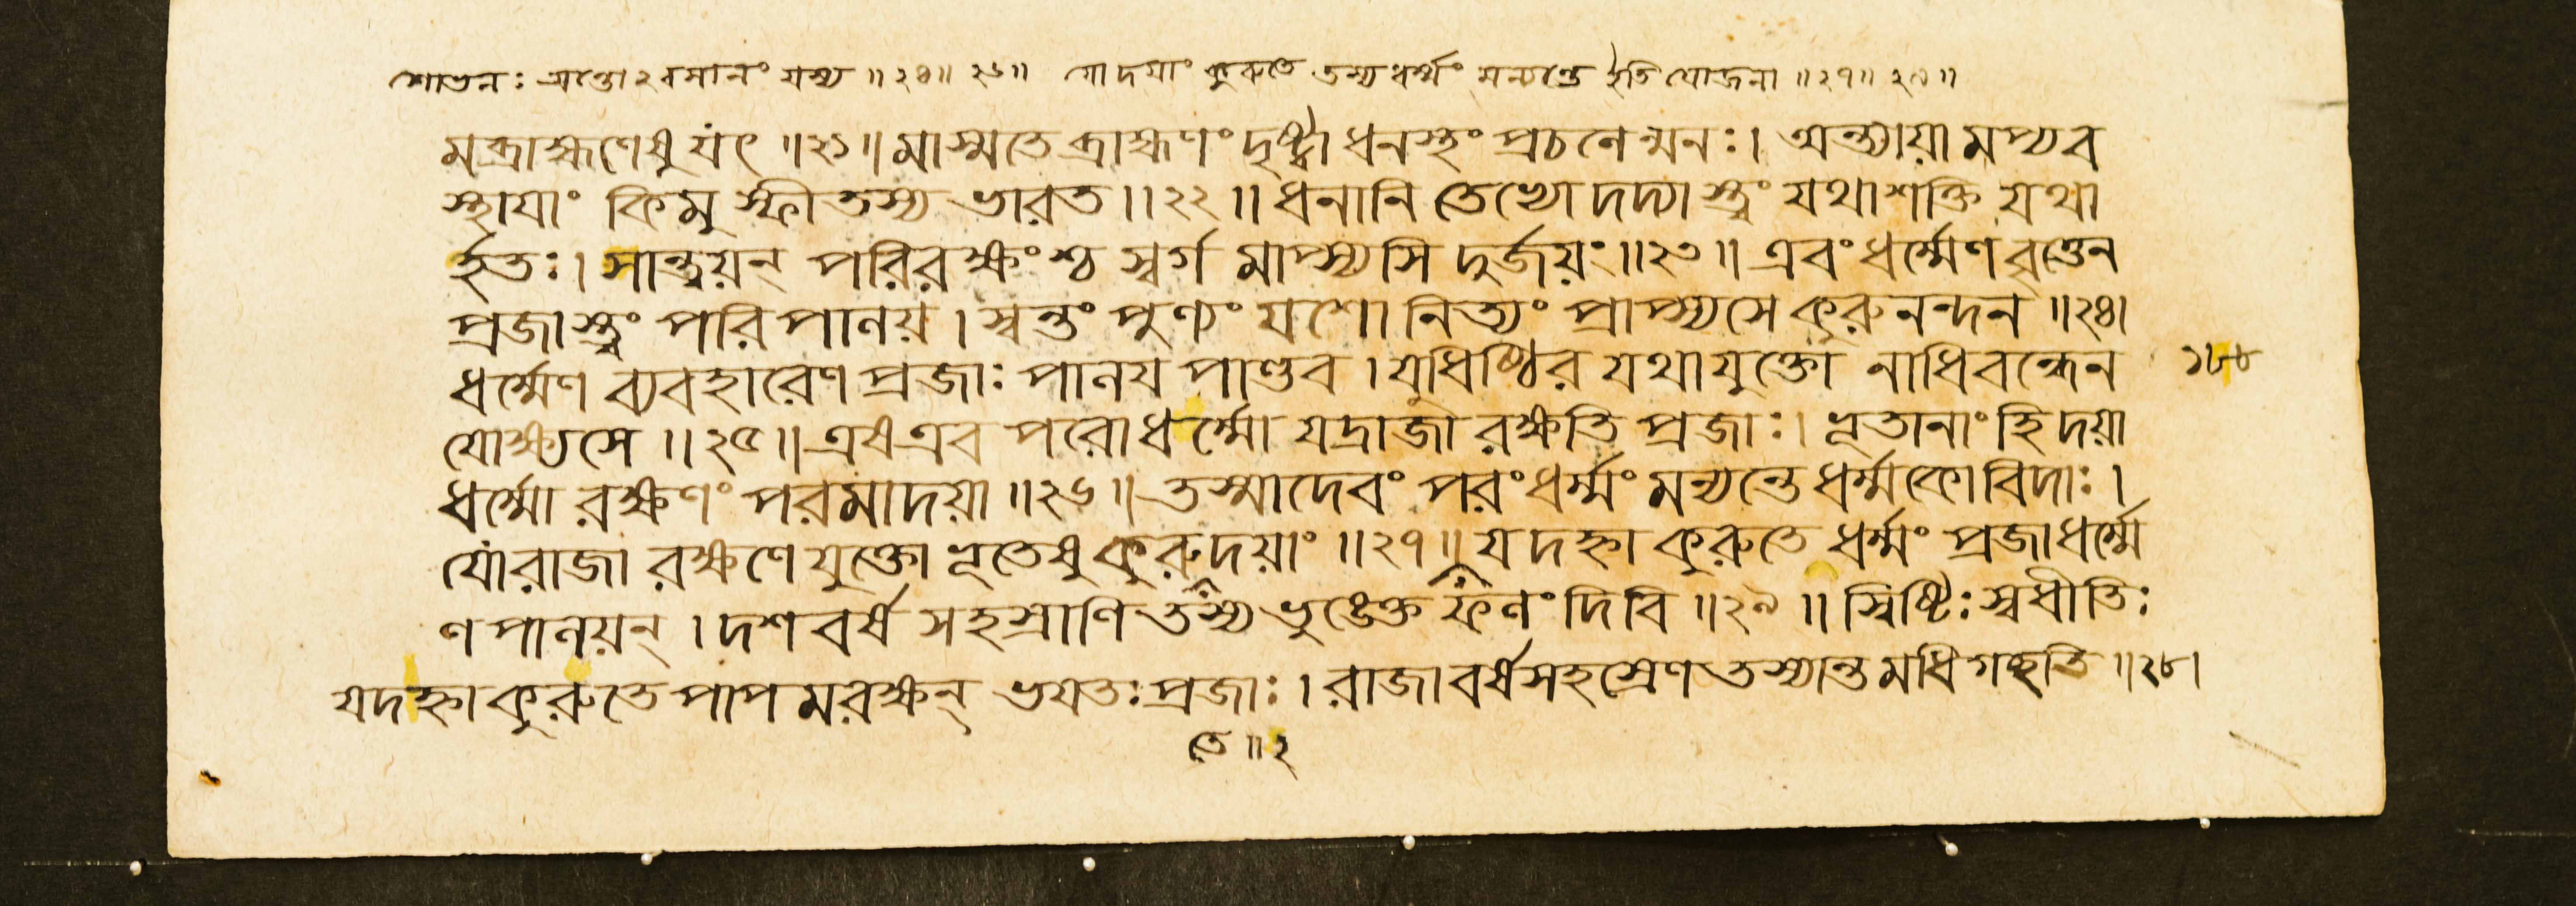 শোভনঃ অন্তোঽবসানং যস্য ॥ ২৪ ॥ ২৬ ॥ যো দয়াং কুরুতে তস্য ধর্ম্মং মন্যন্তে ইতি যোজনা ॥ ২৭ ॥ ২৮ ॥
মব্রাহ্মণেষু যৎ ॥২১॥ মাস্মতে ব্রাহ্মণং দৃষ্ট্বা ধনস্থং প্রচলেন্মনঃ। অন্ত্যায়ামপ্যব
স্থাযাং কিমু স্ফীতস্য ভারত ॥২২॥ ধনানি তেভ্যো দদ্যাস্ত্বং যথাশক্তি যথা
র্হতঃ। সান্ত্বয়ন্ পরিরক্ষংশ্চ স্বর্গমাপ্স্যসি দুর্জয়ং ॥২৩॥ এবং ধর্ম্মেণ বৃত্তেন
প্রজাস্ত্বং পরিপালয়। স্বন্তং পুণ্যং যশো নিত্যং প্রাপ্স্যসে কুরুনন্দন ॥২৪।
ধর্ম্মেণ ব্যবহারেণ প্রজাঃ পালয পাণ্ডব। যুধিষ্ঠির যথাযুক্তো নাধিবন্ধেন
যোক্ষ্যসে ॥২৫॥ এষ এব পরোধর্ম্মো যদ্রাজা রক্ষতি প্রজাঃ। ভূতানাং হি দয়া
ধর্ম্মো রক্ষণং পরমাদয়া ॥২৬॥ তস্মাদেবং পরং ধর্ম্মং মন্যন্তে ধর্ম্মকোবিদাঃ।
যোরাজা রক্ষণে যুক্তো ভূতেষু কুরুদয়াং ॥২৭॥ যদহ্না কুরুতে ধর্ম্মং প্রজাধর্ম্মে
ণ পালয়ন্। দশবর্ষ সহস্রাণি তস্য ভুঙ্ক্তে ফলং দিবি ॥২৯॥ স্বিষ্টিঃ স্বধীতিঃ
যদহ্না কুরুতে পাপমরক্ষন্ ভযতঃ প্রজাঃ। রাজা বর্ষসহস্রেণ তস্যান্তমধিগচ্ছতি ॥২৮।
তে ॥ ২